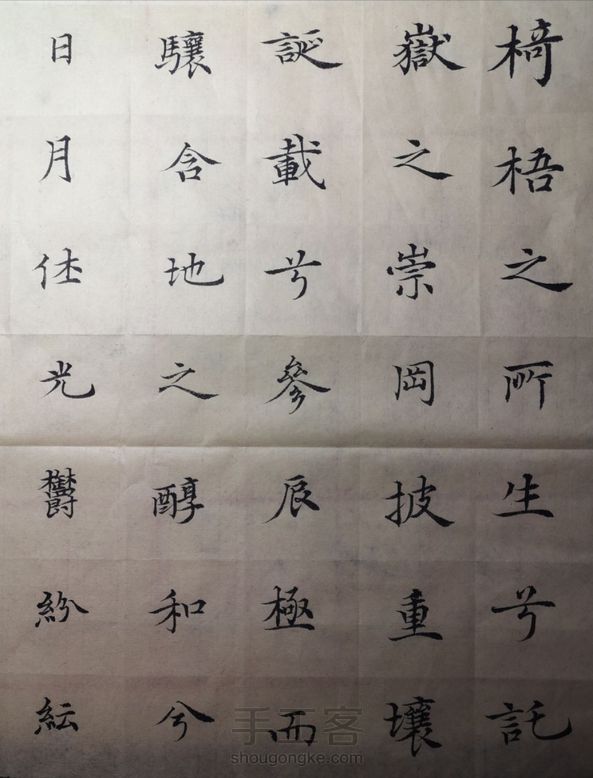 椅梧之所生兮託
嶽之崇岡披重壤
誕載兮參辰極而
驤含地之醇和兮
日月休光欝紛紜
手工客
shougongke.com